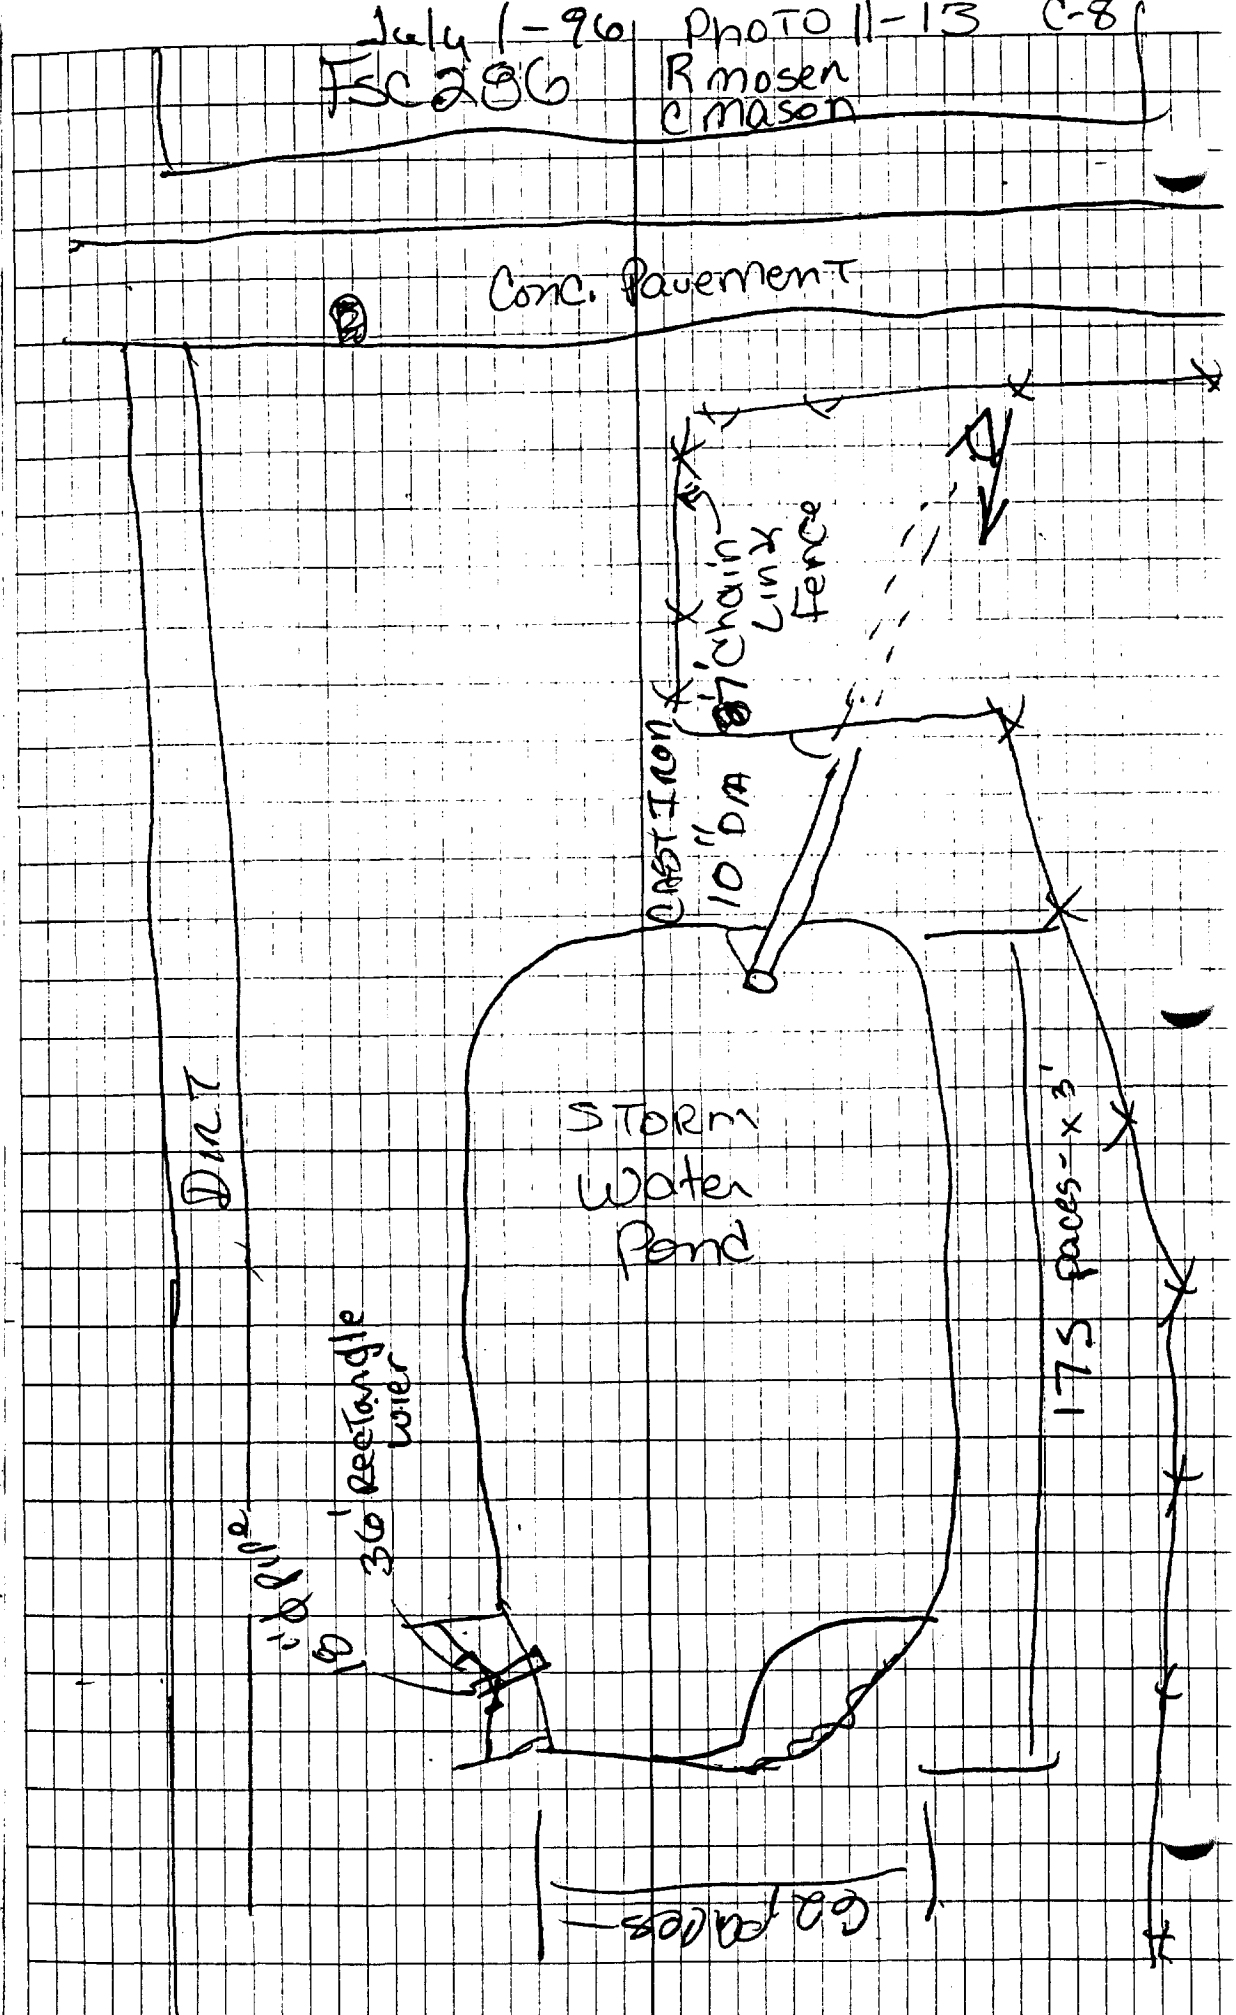 July 1-96 Photo 11-13 C-8
FSC 286
R Mosen
C Mason
Conc. Pavement
7' Chain
Link
Fence
Cast Iron
10" DIA
Dirt
Storm
Water
Pond
175 paces - x 3'
36' Rectangle
Wier
18" Ø Pipe
62 paces -